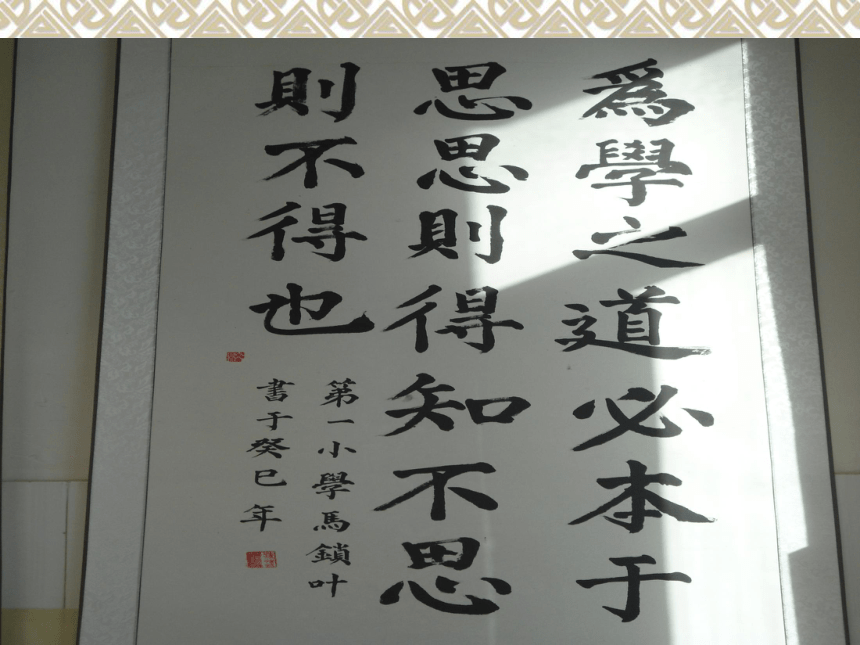 為學之道必本于
思思則得知不思
則不得也
第一小學馬鎖叶
書于癸巳年